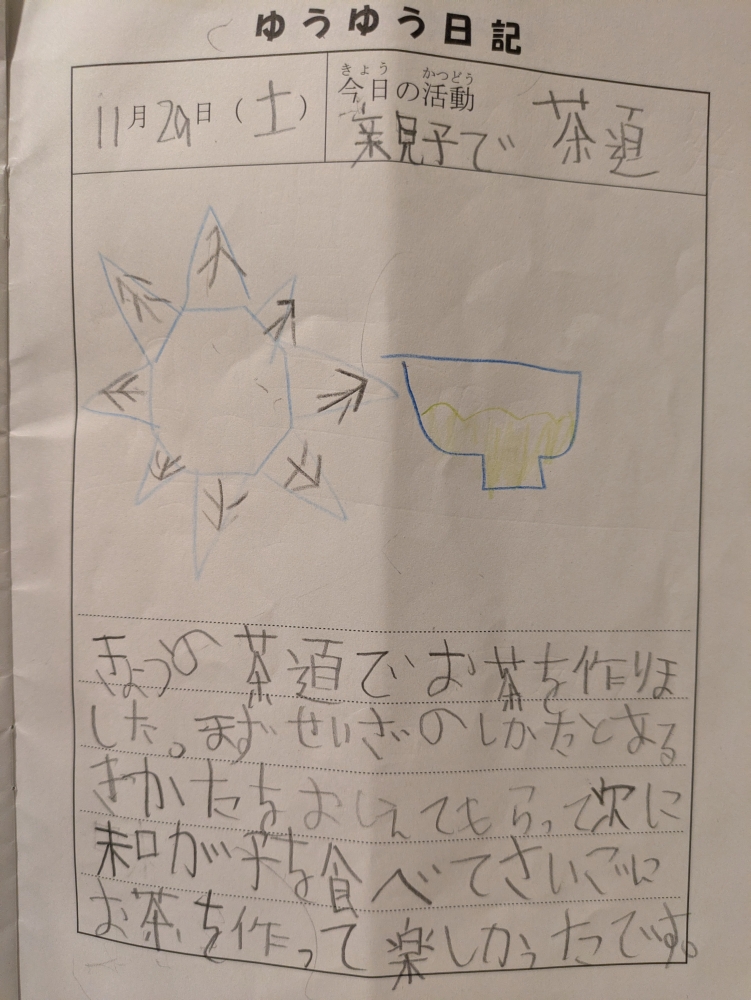 ゆうゆう日記
11月29日(土)
きょう かつどう
今日の活動
親子で 茶道
きょうの茶道でお茶を作りま
した。まずせいざのしかたとある
きかたをおしえてもらって次に
和がしを食べてさいごに
お茶を作って楽しかったです。